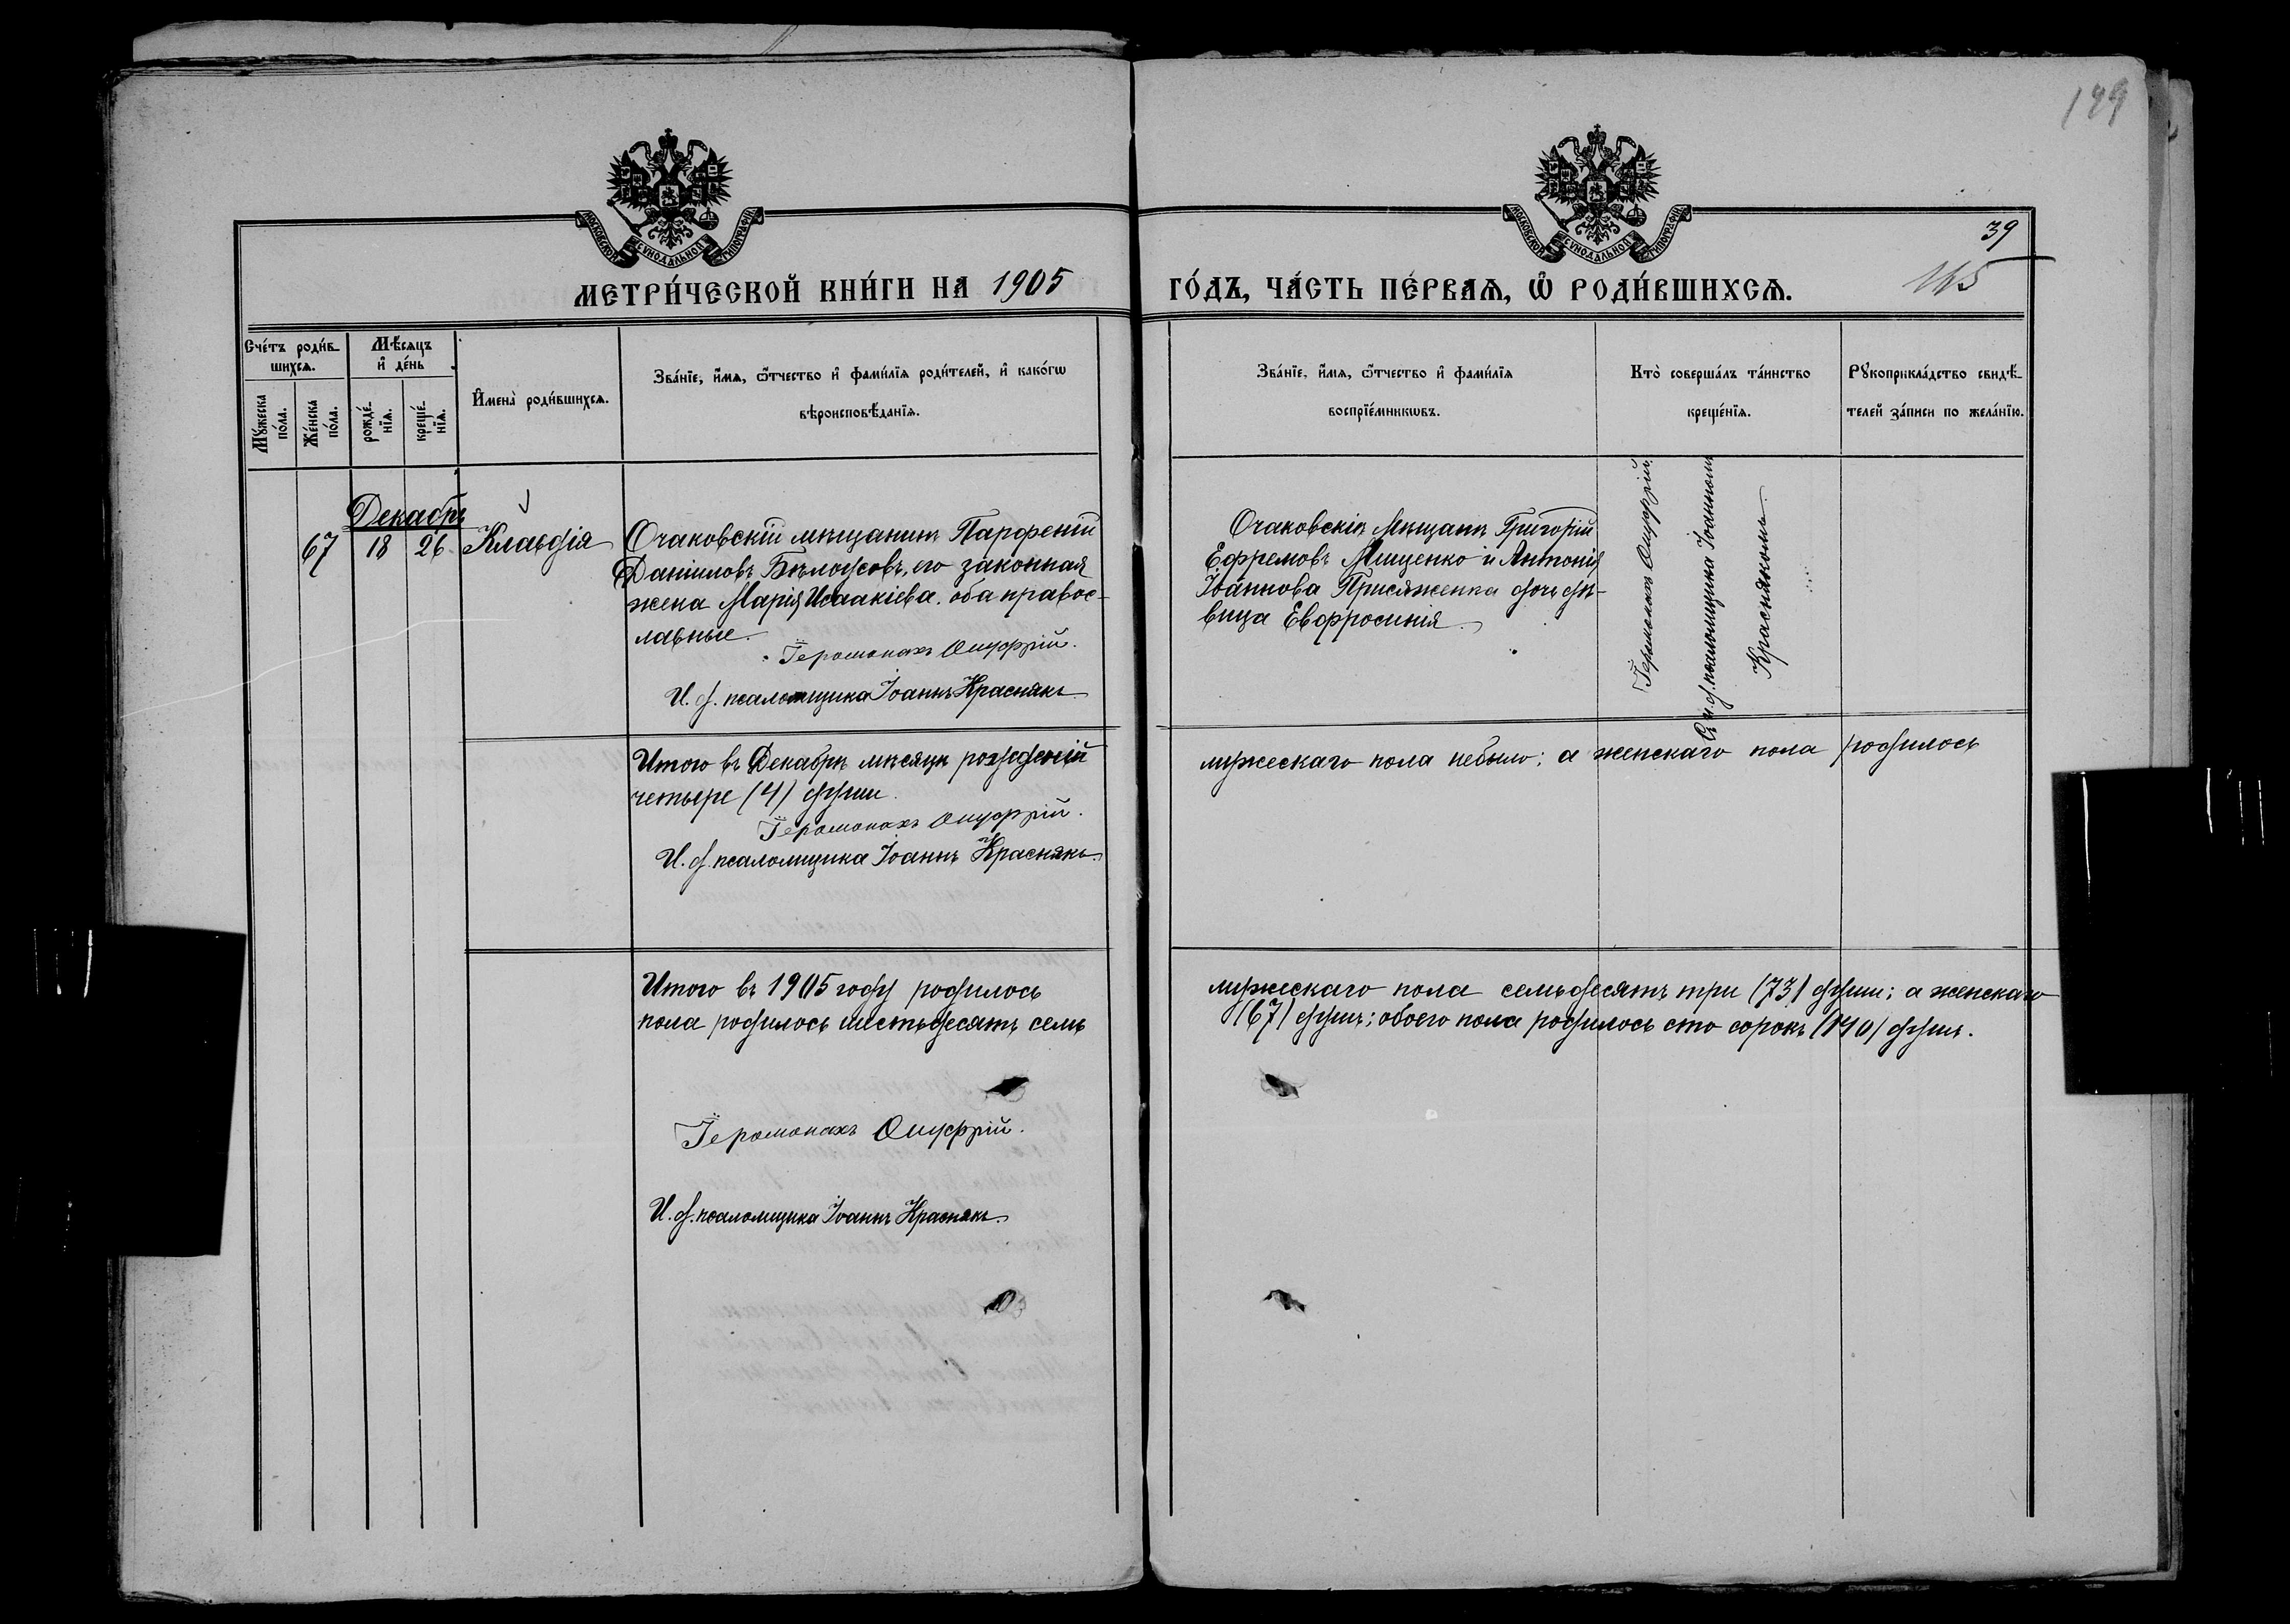 189
МОСКОВСКОЙ СУНОДАЛЬНОЙ ТИПОГРАФІИ
МОСКОВСКОЙ СУНОДАЛЬНОЙ ТИПОГРАФІИ
39
165
МЕТРИ́ЧЕСКОЙ КНИ́ГИ НА 1905
ГО́ДЪ, ЧА́СТЬ ПЕ́РВАѦ, Ѡ҆ РОДИ́ВШИХСѦ.
Сче́тъ роди́в-
шихсѧ.
Мѣ́сѧцъ
и҆ де́нь
Мꙋ́жеска
по́ла.
Же́нска
по́ла.
рожде́-
нїѧ.
креще́-
нїѧ.
И҆мена̀ роди́вшихсѧ.
Зва́нїе, и҆́мѧ, ѻ҆́тчество и҆ фами́лїѧ роди́телей, и҆ како́гѡ
вѣроисповѣ́данїѧ.
Зва́нїе, и҆́мѧ, ѻ҆́тчество и҆ фами́лїѧ
воспрїе́мникѡвъ.
Кто̀ соверша́лъ та́инство
креще́нїѧ.
Рꙋкоприкла́дство свидѣ́-
телей за́писи по жела́нїю.
Декабрь
67 18 26 Клавдія
Очаковскій мѣщанинъ Парфеній
Даніиловъ Бѣлоусовъ, его законная
жена Марія Исаакіева. оба правос-
лавные.
Іеромонахъ Онуфрій.
И. д. псаломщика Іоаннъ Краснякъ
Очаковскій Мѣщанъ Григорій
Ефремовъ Мищенко и Антонія
Іоаннова Присяженка дочь дѣ-
вица Евфросинія
Іеромонахъ Онуфрій
Съ и. д. псаломщика Іоанномъ
Краснякомъ.
Итого въ Декабрѣ мѣсяцѣ рожденій
четыре (4) души.
Іеромонахъ Онуфрій.
И. д. псаломщика Іоаннъ Краснякъ
мужескаго пола небыло; а женскаго пола родилось
Итого въ 1905 году родилось
пола родилось шестьдесятъ семь
мужескаго пола семьдесятъ три (73) души; а женскаго
(67) душъ; обоего пола родилось сто сорокъ (140) душъ.
Іеромонахъ Онуфрій.
И. д. псаломщика Іоаннъ Краснякъ